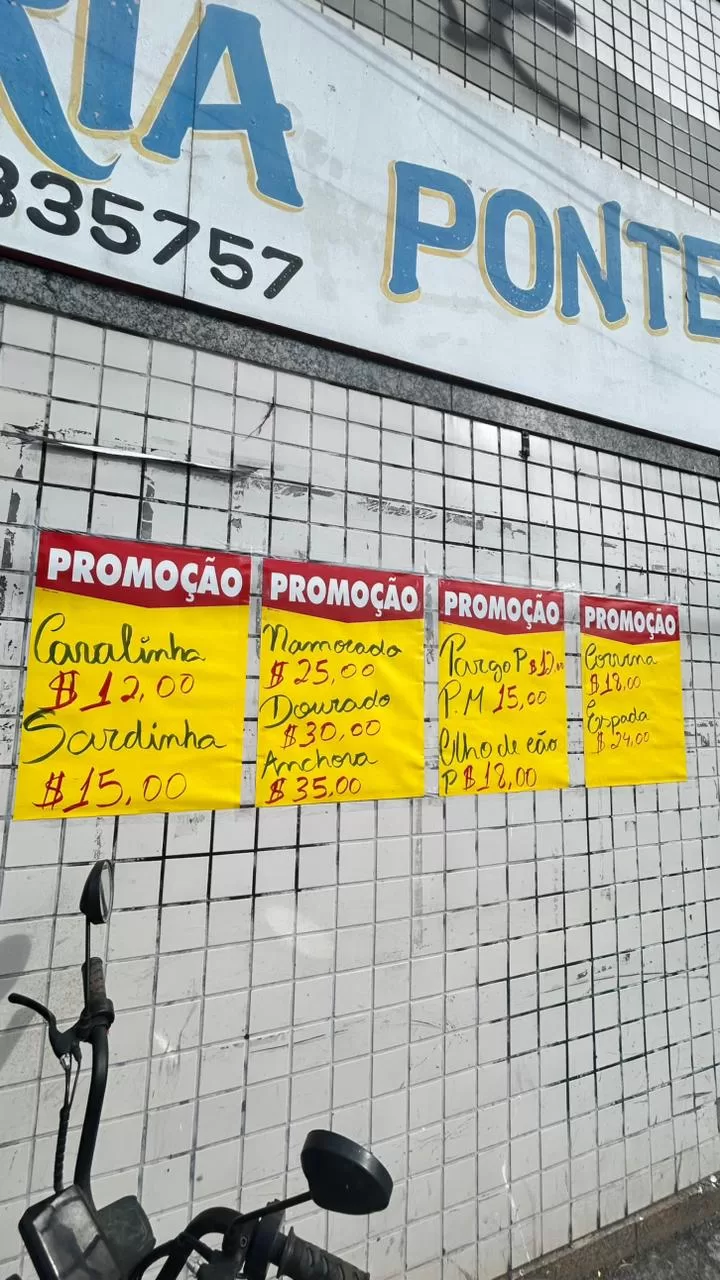 RIA PONTE
335757
PROMOÇÃO
Caralinha
$12,00
Sardinha
$15,00
PROMOÇÃO
Namorado
$25,00
Dourado
$30,00
Anchova
$35,00
PROMOÇÃO
Pargo P $12,00
P.M 15,00
Olho de cão
P $18,00
PROMOÇÃO
Corvina
$18,00
Espada
$24,00